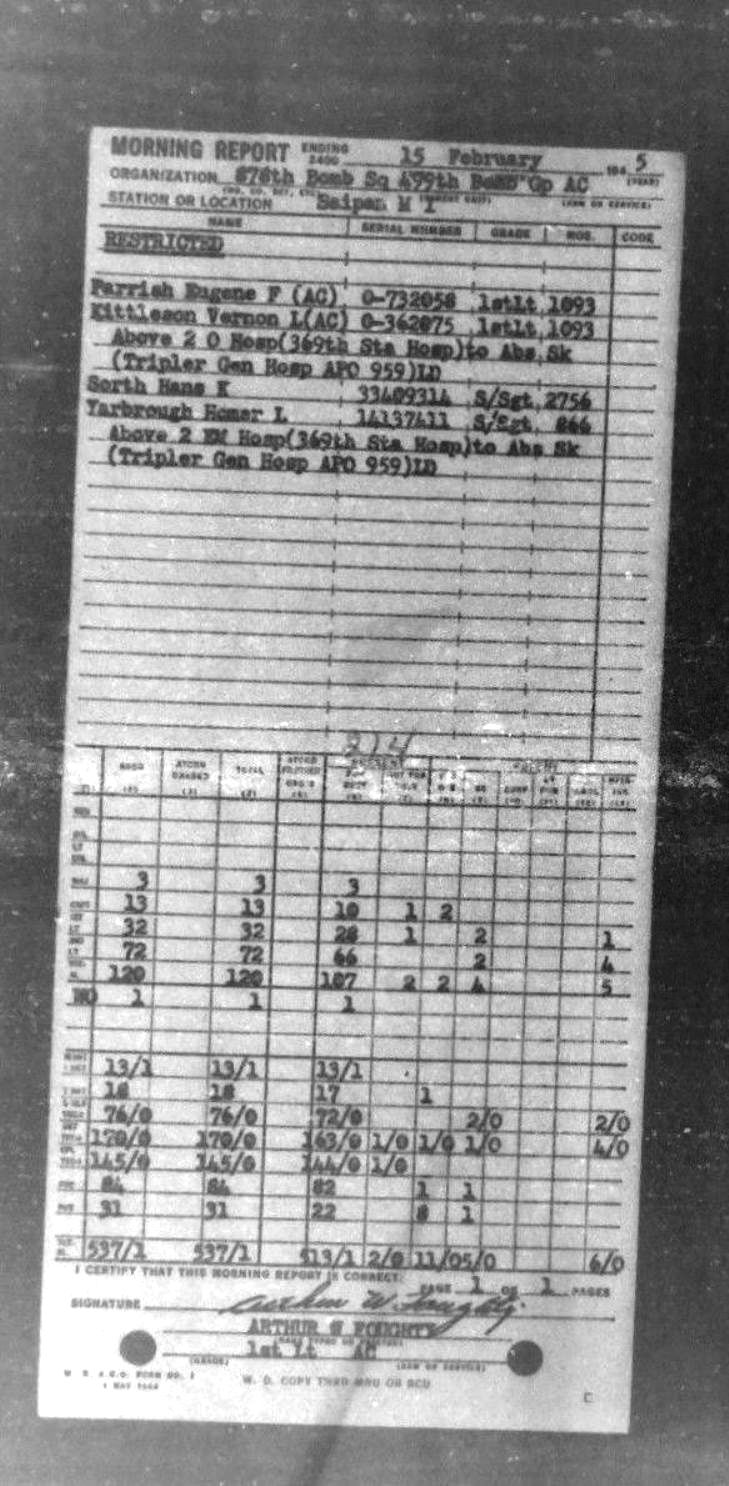 MORNING REPORT ENDING 2400 15 February 194 5 (YEAR)
ORGANIZATION 878th Bomb Sq 499th Bomb Gp AC
STATION OR LOCATION Saipan M I (ARM OR SERVICE)
NAME SERIAL NUMBER GRADE MOS. CODE
RESTRICTED
Parrish Eugene F (AC) O-732058 1stLt 1093
Kittleson Vernon L(AC) O-362875 1stLt 1093
Above 2 O Hosp(369th Sta Hosp)to Abs Sk
(Tripler Gen Hosp APO 959)LD
Sorth Hans K 33409314 S/Sgt 2756
Yarbrough Homer L 14137411 S/Sgt 866
Above 2 EM Hosp(369th Sta Hosp)to Abs Sk
(Tripler Gen Hosp APO 959)LD
214
PRESENT
ASGD ATCHD TOTAL
MAJ 3 3 3
CAPT 13 13 10 1 2
1ST LT 32 32 28 1 2 1
2ND LT 72 72 66 2 4
120 120 107 2 2 4 5
WO 1 1 1
13/1 13/1 13/1
18 18 17 1
76/0 76/0 72/0 2/0 2/0
170/0 170/0 163/0 1/0 1/0 1/0 4/0
145/0 145/0 144/0 1/0
84 84 82 1 1
PVT 31 31 22 8 1
537/1 537/1 513/1 2/0 11/0 5/0 6/0
I CERTIFY THAT THIS MORNING REPORT IS CORRECT:
PAGE 1 OF 1 PAGES
SIGNATURE Arthur W Foughty
ARTHUR W FOUGHTY
(NAME TYPED OR PRINTED)
1st Lt AC
(GRADE) (ARM OR SERVICE)
W. D. A.G.O. FORM NO. 1
W. D. COPY THRU MRU OR SCU
C